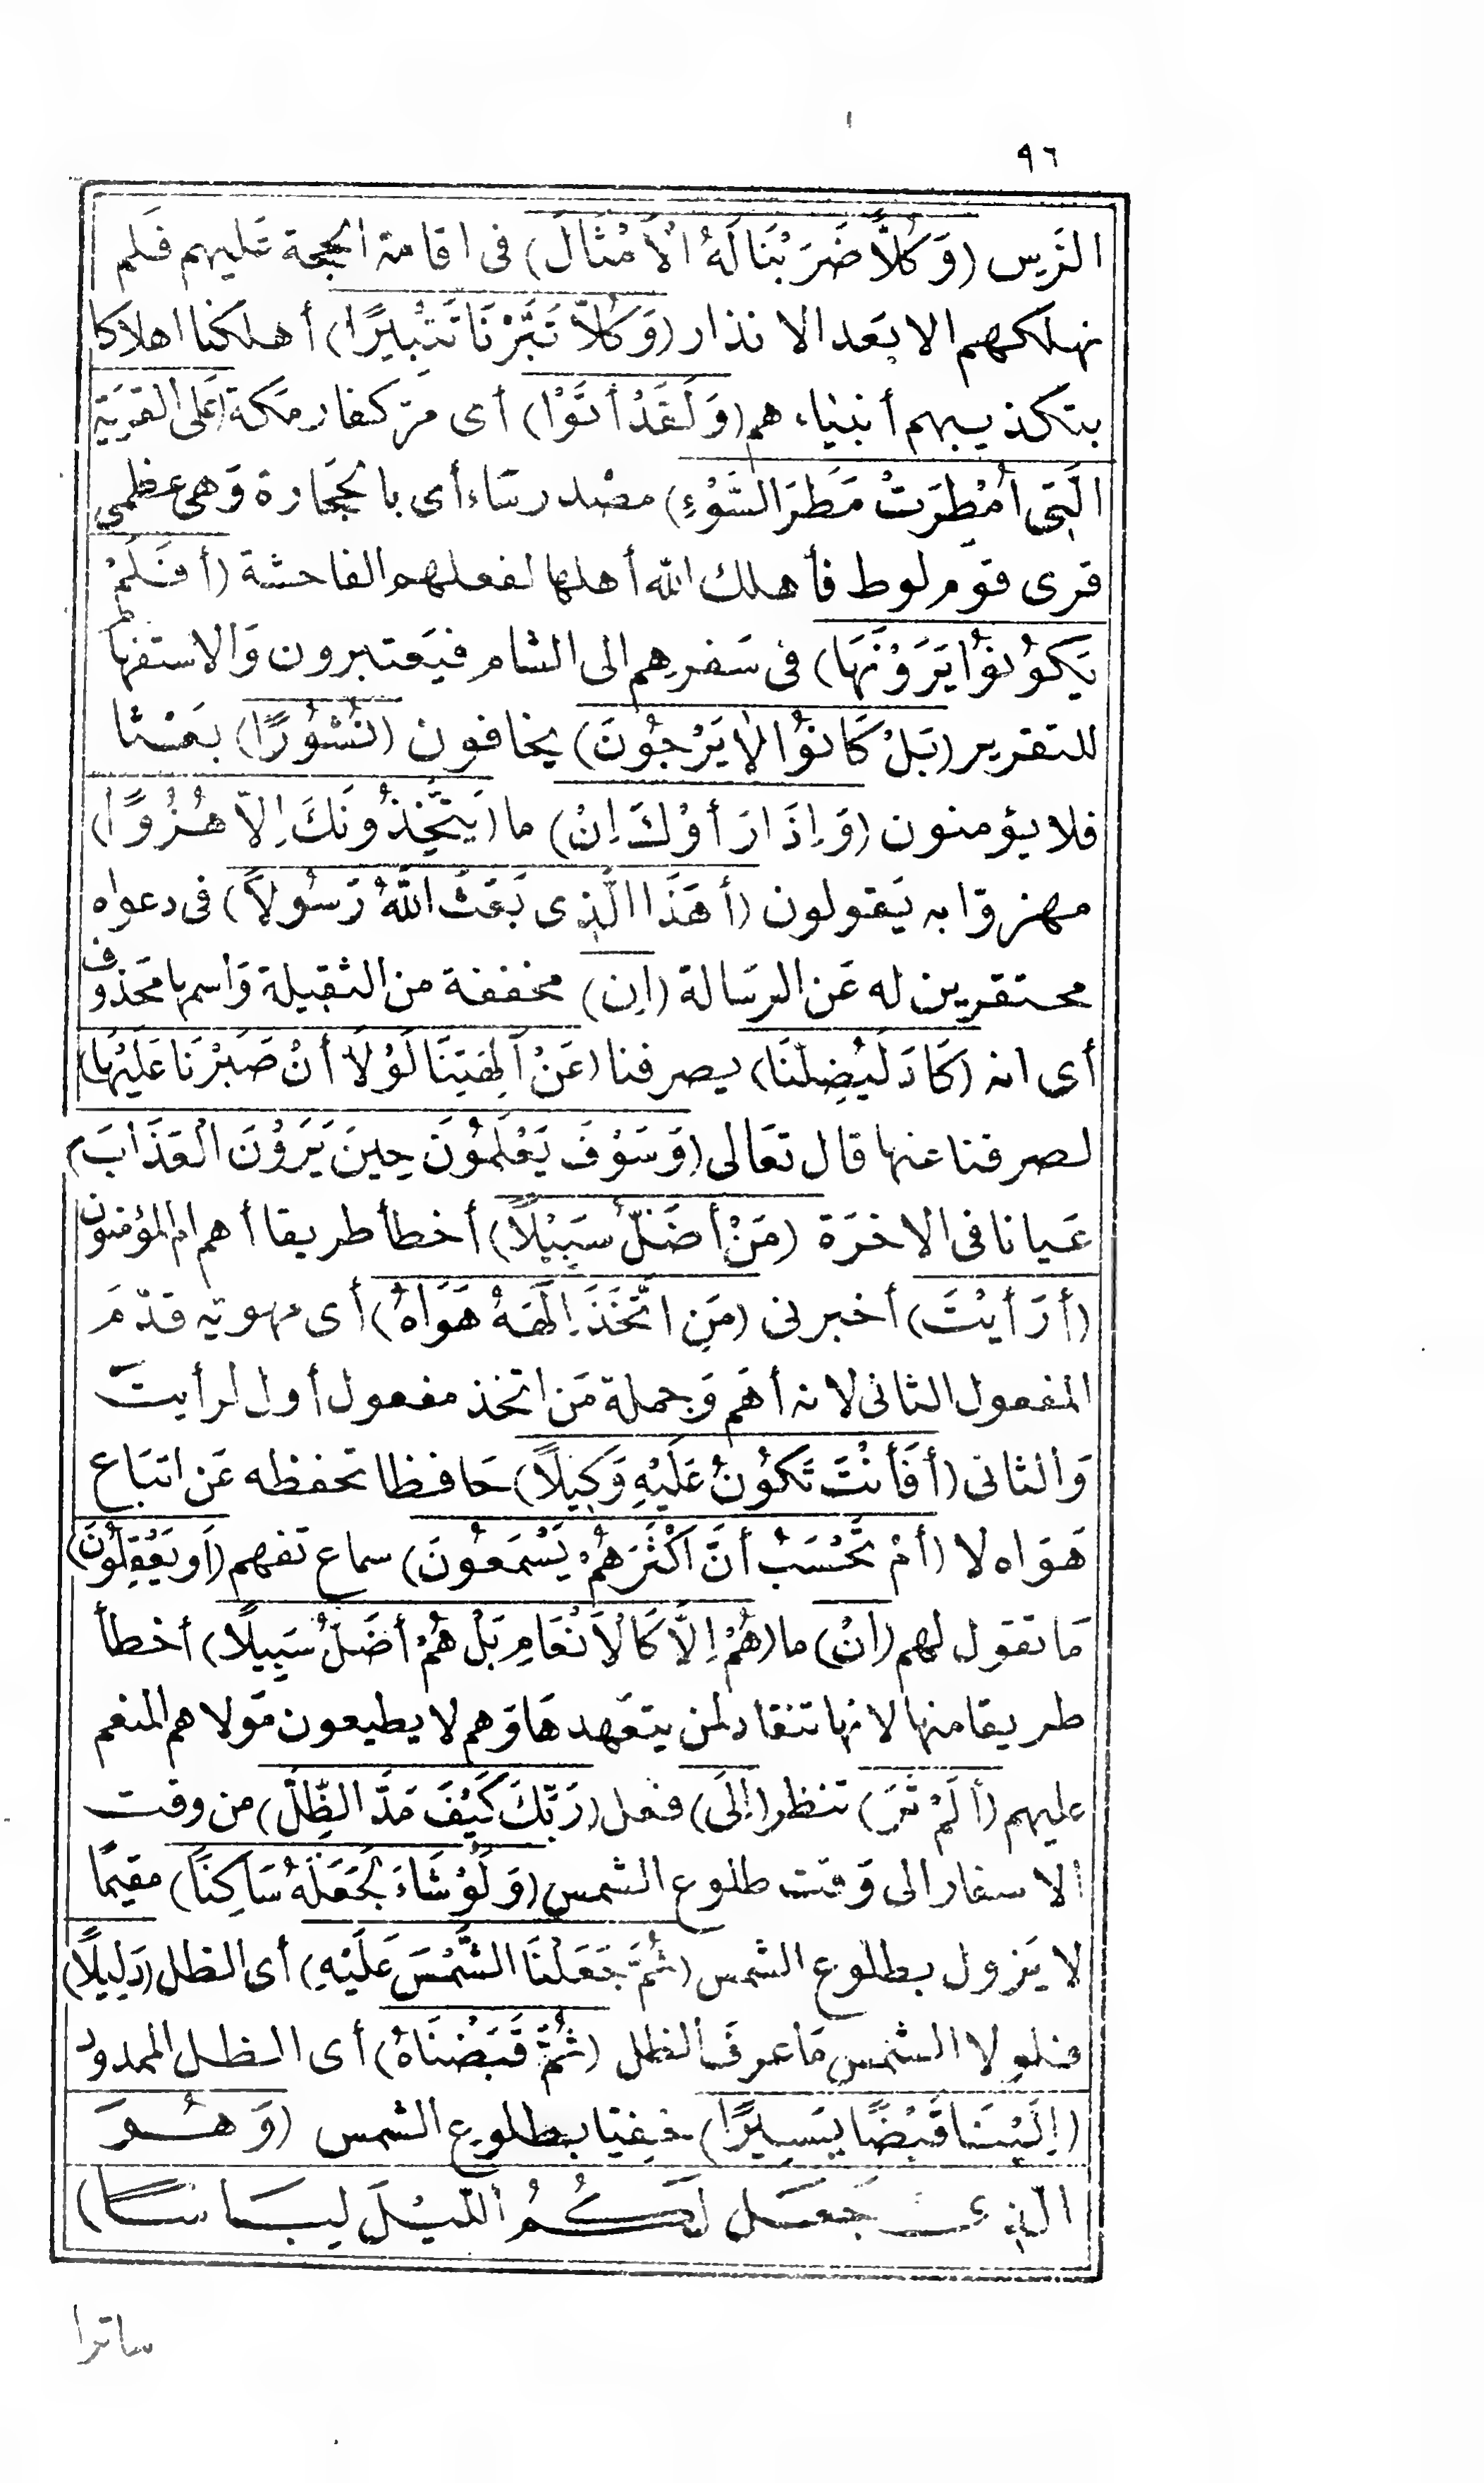 ٩٦
الرس (وَكُلًّا ضَرَبْنَا لَهُ الْأَمْثَالَ) فى اقامة الحجة عَليهم فَلم
نهلكهم الا بعَد الانذار (وَكُلًّا تَبَّرْنَا تَتْبِيرًا) أهلكنا اهلاكا
بتكذيبهم أنبيَاءهم (وَلَقَدْ أَتَوْا) أى مَرّ كفار مَكة (عَلَى القَرْيَةِ
الَّتِى أُمْطِرَتْ مَطَرَ السَّوْءِ) مصْدر سَاء أى بالحجَارة وَهى عظمى
قرى قوم لوط فأهلك الله أهلها لفعلهم الفاحشة (أَفَلَمْ
يَكُونُوا يَرَوْنَهَا) فى سَفرهم الى الشام فيَعتبرون وَالاستفهام
للتقرير (بَلْ كَانُوا لَا يَرْجُونَ) يخافون (نُشُورًا) بعَثا
فلا يؤمنون (وَإِذَا رَأَوْكَ إِنْ) ما (يَتَّخِذُونَكَ إِلَّا هُزُوًا)
مهزوّا به يَقولون (أَهَذَا الَّذِى بَعَثَ اللَّهُ رَسُولًا) فى دعواه
محتقرين له عَن الرسَالة (اِن) مخففة من الثقيلة وَاسمها محَذوف
أى انه (كَادَ لَيُضِلُّنَا) يصرفنا (عَنْ آلِهَتِنَا لَوْلَا أَنْ صَبَرْنَا عَلَيْهَا)
لصرفنا عنها قال تعَالى (وَسَوْفَ يَعْلَمُونَ حِينَ يَرَوْنَ الْعَذَابَ)
عَيانا فى الاخرَة (مَنْ أَضَلُّ سَبِيْلًا) أخطأ طريقا أهم ام المؤمنون
(أَرَأَيْتَ) أخبرنى (مَنِ اتَّخَذَ إِلَهَهُ هَوَاهُ) أى مهويه قدّمَ
المفعول الثانى لانه أهَم وَجملة مَن اتخذ مفعول أول لرأيتَ
وَالثانى (أَفَأَنْتَ تَكُونُ عَلَيْهِ وَكِيلًا) حَافظا تحفظه عَن اتبَاع
هَوَاه لا (أَمْ تَحْسَبُ أَنَّ أَكْثَرَهُمْ يَسْمَعُونَ) سماع تفهم (أَو يَعْقِلُونَ)
مَا تقول لهم (اِنْ) ما (هُمْ إِلَّا كَالْأَنْعَامِ بَلْ هُمْ أَضَلُّ سَبِيلًا) أخطأ
طريقا منها لانها تنقاد لمن يتعَهدهَا وَهم لا يطيعون مَولاهم المنعم
عليهم (أَلَمْ تَرَ) تنظر (إِلَى) فعل (رَبِّكَ كَيْفَ مَدَّ الظِّلَّ) من وقت
الاسفار الى وَقت طلوع الشمس (وَلَوْ شَاءَ لَجَعَلَهُ سَاكِنًا) مقيمًا
لا يَزول بطلوع الشمس (ثُمَّ جَعَلْنَا الشَّمْسَ عَلَيْهِ) أى الظل (دَلِيلًا)
فلولا الشمس مَا عرفَ الظل (ثُمَّ قَبَضْنَاهُ) أى الظل الممدود
(إِلَيْنَا قَبْضًا يَسِيرًا) خفِيّا بطلوع الشمس (وَهُوَ
الذِى جَعَل لَكُمُ اللَّيْلَ لِبَاسًا)
ساترا